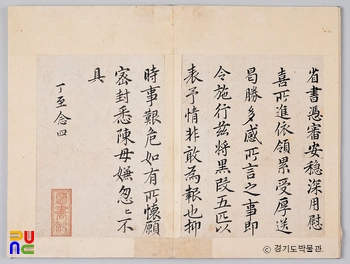 省書憑審安穩深用慰
喜所進依領累受厚送
曷勝多感所言之事卽
令施行玆將黑段五匹以
表予情非敢為報也抑
時事艱危如有所懷願
密封悉陳毋嫌忽〻不
具
丁至念四
© 경기도박물관